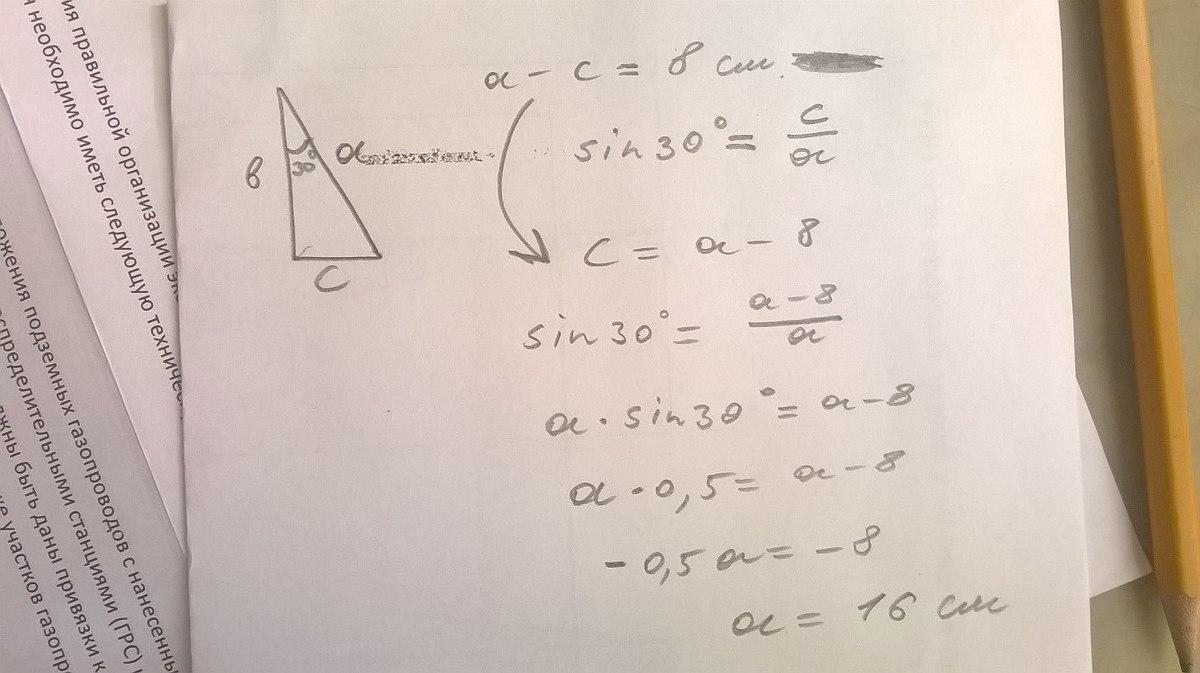 ия правильной организации эк
н необходимо иметь следующую техничес
ложения подземных газопроводов с нанесенны
спределительными станциями (ГРС)
жны быть даны привязки к
участков газопр
a - c = 8 см.
sin30° = c/a
в
30°
a
c
c = a - 8
sin30° = a-8/a
a · sin30° = a-8
a · 0,5 = a-8
-0,5a = -8
a = 16 см